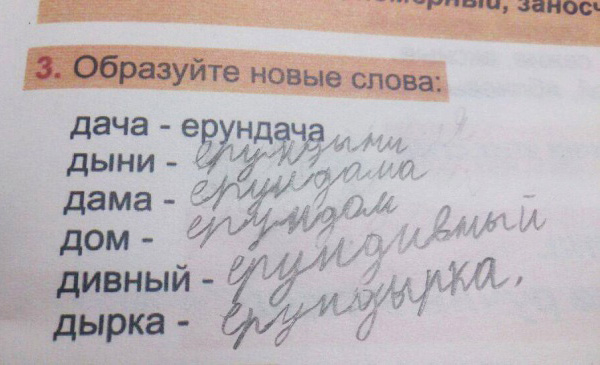 заносч
3. Образуйте новые слова:
дача - ерундача
дыни - ерундыни
дама - ерундама
дом - ерундом
дивный - ерундивный
дырка - ерундырка.